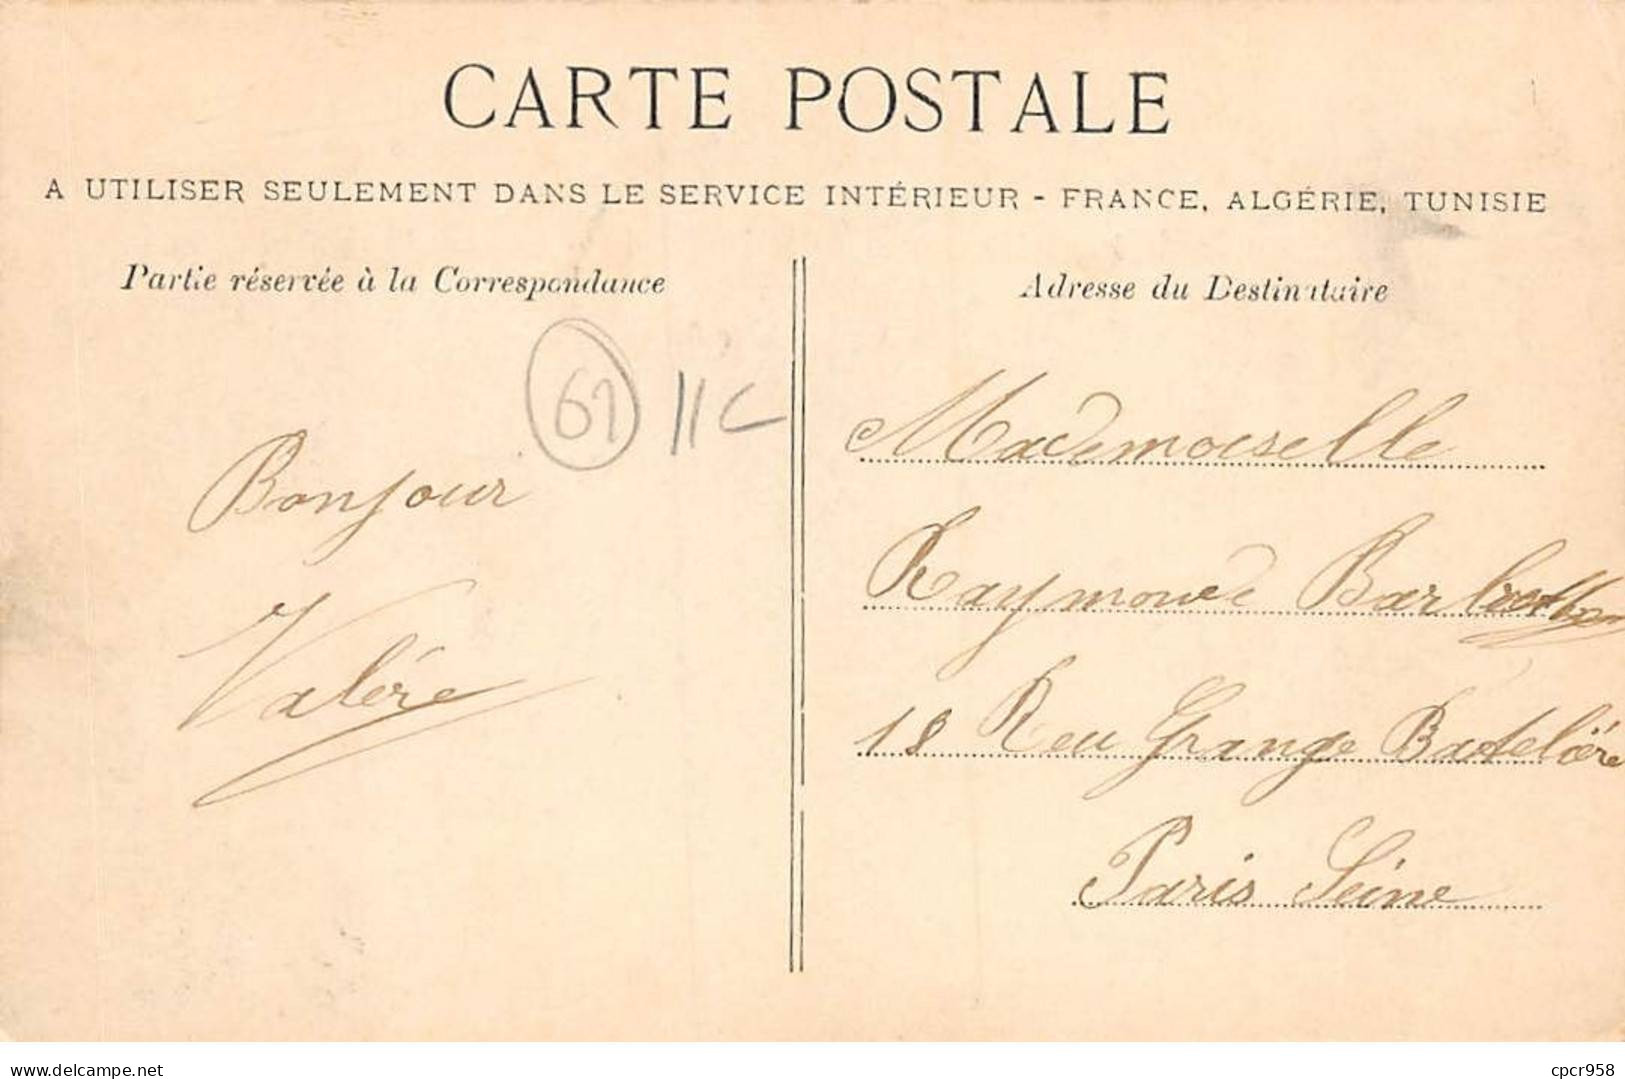 CARTE POSTALE
A UTILISER SEULEMENT DANS LE SERVICE INTÉRIEUR - FRANCE, ALGÉRIE, TUNISIE
Partie réservée à la Correspondance
Adresse du Destinataire
61 11C
Bonjour
Valérie
Mademoiselle
Raymonde
18 Reu Grange Batelière
Paris Seine
www.delcampe.net
cpcr958